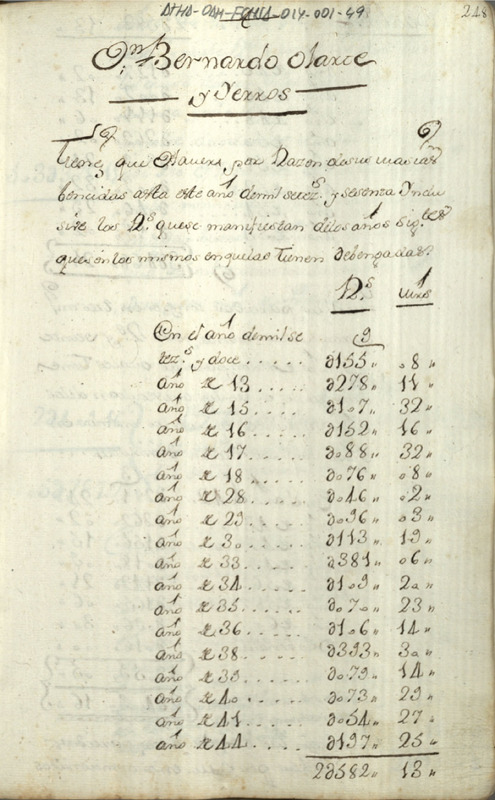 ATHA-OAH-FCHIA-014-001-49
248
Dn. Bernardo Olarte
y Yerros
que Havera por Razon de sus
bencidas asta este año de mil setezs. y sesenta Inclu
sive los Rs. que se manifiestan de los años sigtes.
que son los mismos en que las tienen debengadas
Rs. mrs
En el año de mil se
tezs. y doce ..... 155 " 08 "
año de 13 ..... 278 " 11 "
año de 15 .... 107 " 32 "
año de 16 .... 152 " 16 "
año de 17 .... 088 " 32 "
año de 18 .... 076 " 08 "
año de 28 .... 046 " 02 "
año de 29 .... 096 " 03 "
año de 30 .... 113 " 19 "
año de 33 .... 381 " 06 "
año de 34 .... 109 " 20 "
año de 35 .... 070 " 23 "
año de 36 .... 106 " 14 "
año de 38 .... 393 " 30 "
año de 39 .... 079 " 14 "
año de 40 .... 073 " 29 "
año de 41 .... 054 " 27 "
año de 44 .... 197 " 25 "
2582 " 13 "